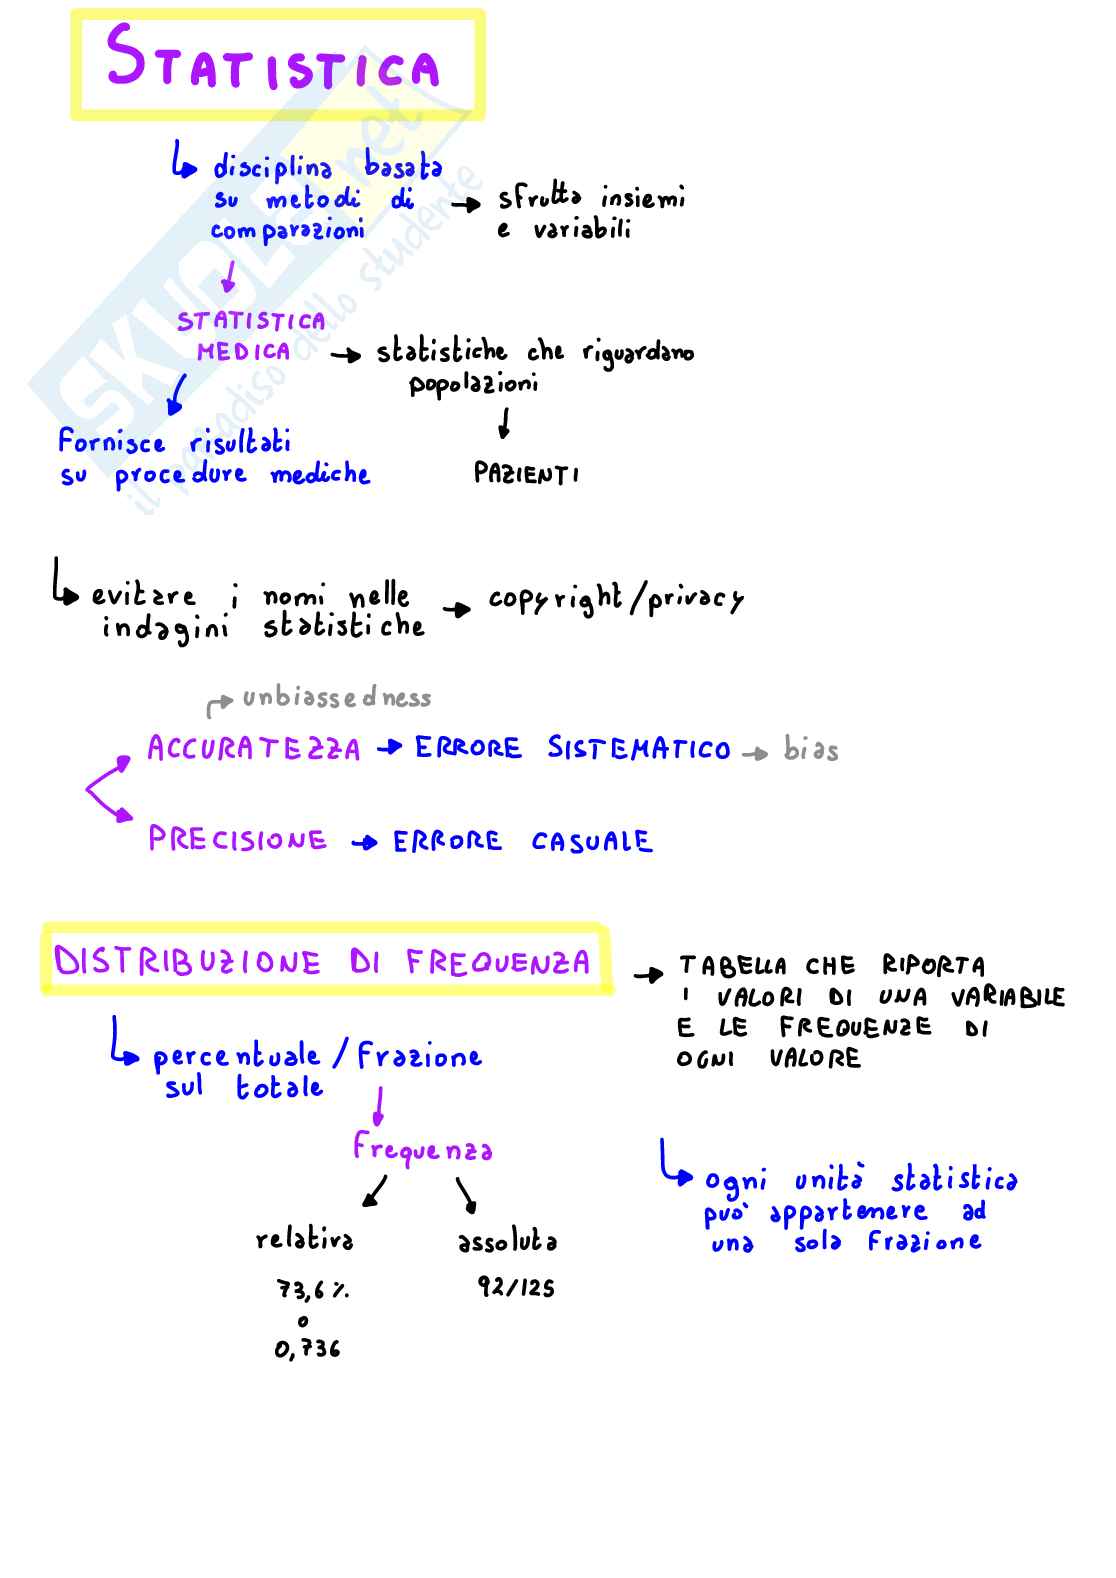 STATISTICA
disciplina basata
su metodi di
comparazioni
sfrutta insiemi
e variabili
STATISTICA
MEDICA
statistiche che riguardano
popolazioni
PAZIENTI
Fornisce risultati
su procedure mediche
SKUOLA.net
il paradiso dello studente
evitare i nomi nelle
indagini statistiche
copyright/privacy
unbiassedness
ACCURATEZZA
ERRORE SISTEMATICO
bias
PRECISIONE
ERRORE CASUALE
DISTRIBUZIONE DI FREQUENZA
TABELLA CHE RIPORTA
I VALORI DI UNA VARIABILE
E LE FREQUENZE DI
OGNI VALORE
percentuale/Frazione
sul totale
Frequenza
relativa
73,6%
o
0,736
assoluta
92/125
ogni unità statistica
può appartenere ad
una sola Frazione